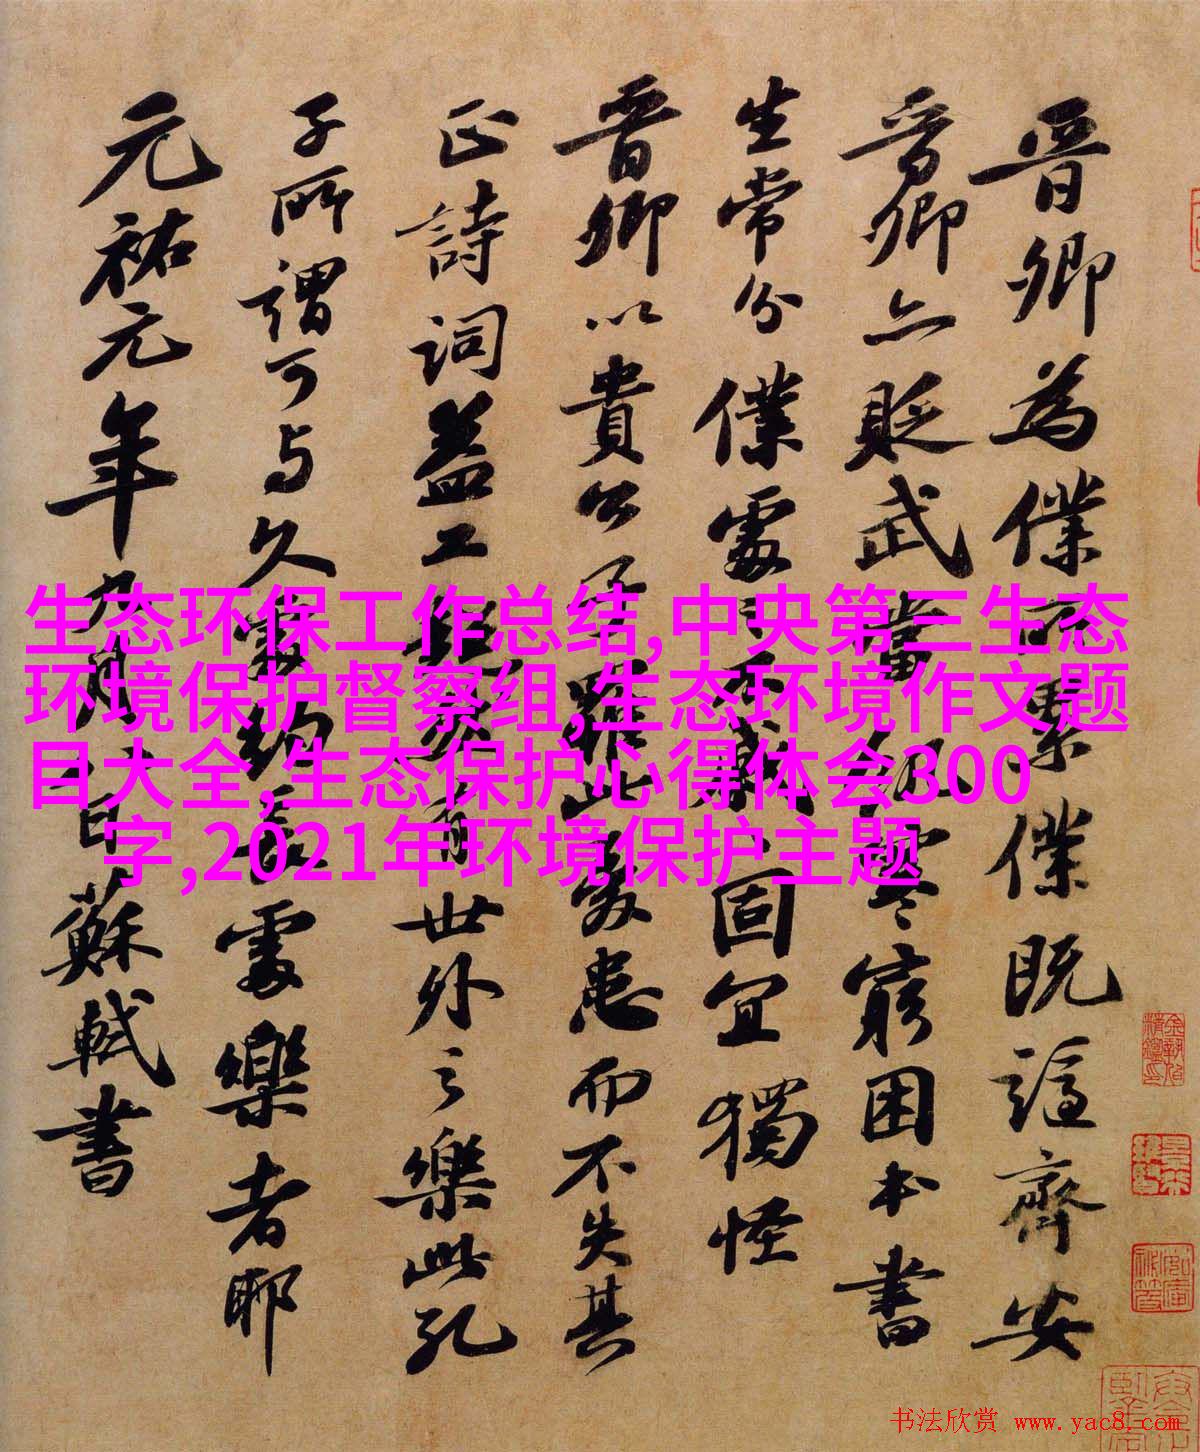 晉卿為僕所累僕既謫齊安
晉卿亦貶武當飢寒窮困本書
生常分僕處之不戚戚固宜獨怪
晉卿以貴公子罹此憂患而不失其
正詩詞益工超然有世外之樂此孔
子所謂可与久處約長處樂者耶
元祐元年九月八日蘇軾書
生态环保工作总结,中央第三生态
环境保护督察组,生态环境作文题
目大全,生态保护心得体会300
字,2021年环境保护主题
书法欣赏 www.yac8.com